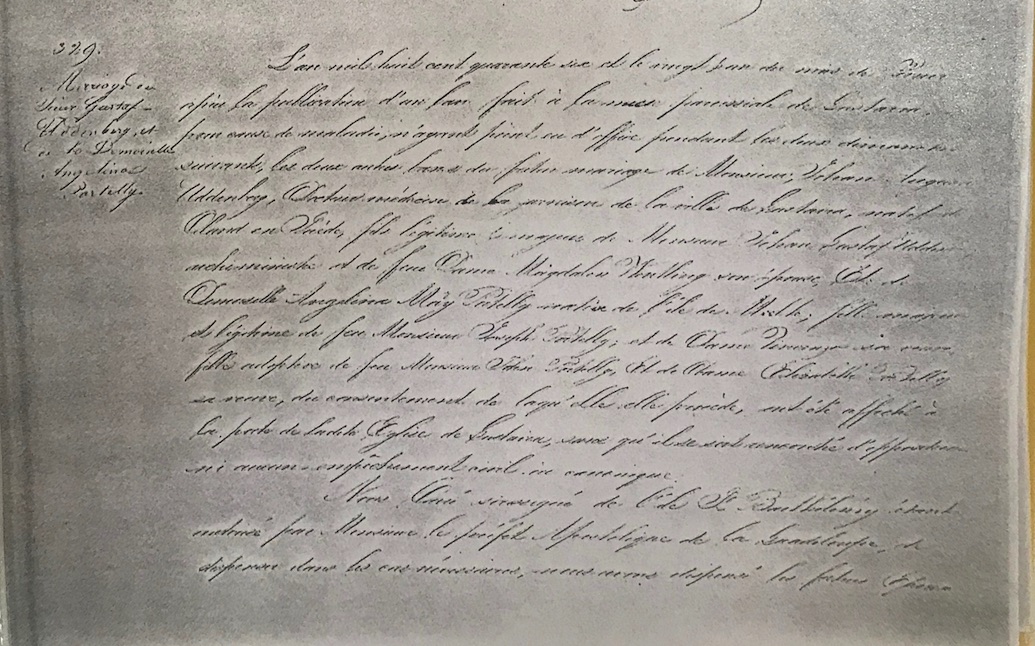 329.
Mariage de
Sieur Gustaf
Uddenberg, et
de la Demoiselle
Angelina
Portelly.
L'an mil huit cent quarante six et le vingt un du mois de
après la publication d'un ban fait à la messe paroissiale de Gustavia,
pour cause de maladie, n'ayant point eu d'office pendant les deux dimanches
suivants, les deux autres bans du futur mariage de Monsieur, Johan
Uddenberg, Docteur médecin de la ville de Gustavia, natif d
Oland en Suède, fils légitime majeur de Monsieur Johan Gustaf
et de feue Dame Magdalin son épouse, Et de
Demoiselle Angelina May Portelly native de l'île de fille majeure
et légitime de feu Monsieur Joseph Portelly; et de Dame sa veuve,
fille adoptive de feu Monsieur Portelly, Et de Dame Elisabeth Portelly
sa veuve, du consentement de laqu'elle elle procède, ont été affiché à
la porte de ladite Eglise de Gustavia, sans qu'il se soit rencontré d'opposition
ni aucun empêchement civil ou canonique.
Nous, Curé soussigné de l'île St Barthélemy étant
autorisé par Monsieur le préfet Apostolique de la Guadeloupe, de
dispenser dans les cas nécessaires, nous avons dispensé les futurs Epoux